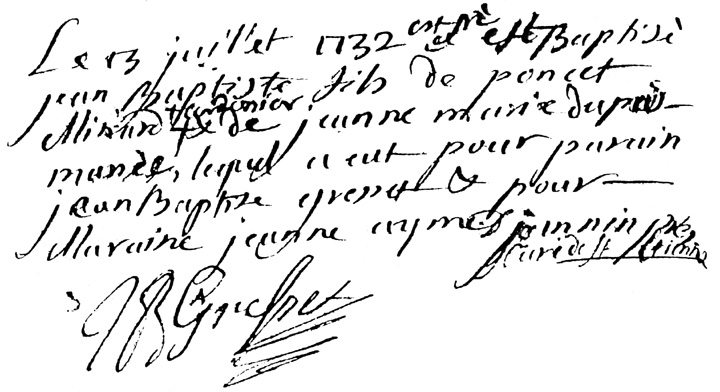 Le 13 juillet 1732 est né et est Baptisé
jean Baptiste fils de poncet
Mirand et de jeanne marie dupuis
mariés, lequel a eut pour parain
jean Baptiste gresset & pour
Maraine jeanne aymes jeannin
Curé de st Etienne
JB Gresset